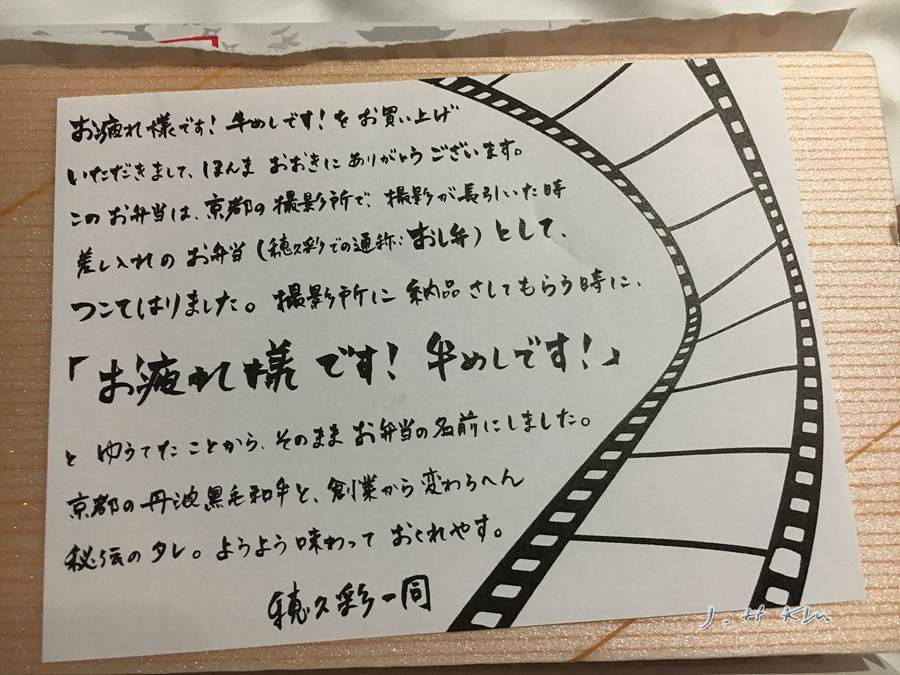 お疲れ様です！牛めしです！をお買い上げ
いただきまして、ほんま おおきにありがとうございます。
この お弁当は、京都の撮影所で、撮影が長引いた時
差し入れの お弁当（穂久彩での通称：おし弁）として、
つこてはりました。撮影所に納品さしてもらう時に、
「お疲れ様です！牛めしです！」
と ゆうてたことから、そのままお弁当の名前にしました。
京都の丹波黒毛和牛と、創業から変わらへん
秘伝のタレ。ようよう味わって おくれやす。
穂久彩一同
J.H Kim